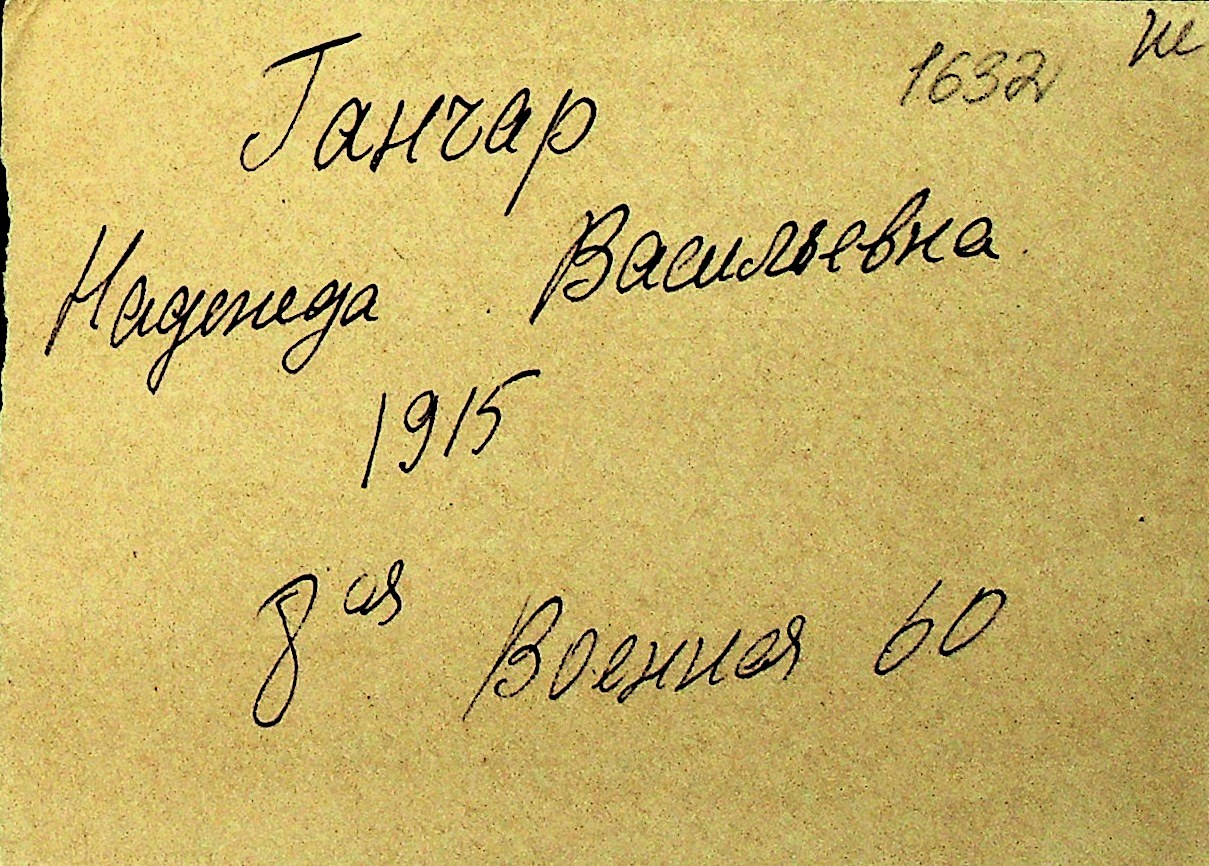 1632
Ганчар
Надежда Васильевна
1915
8ая Военная 60